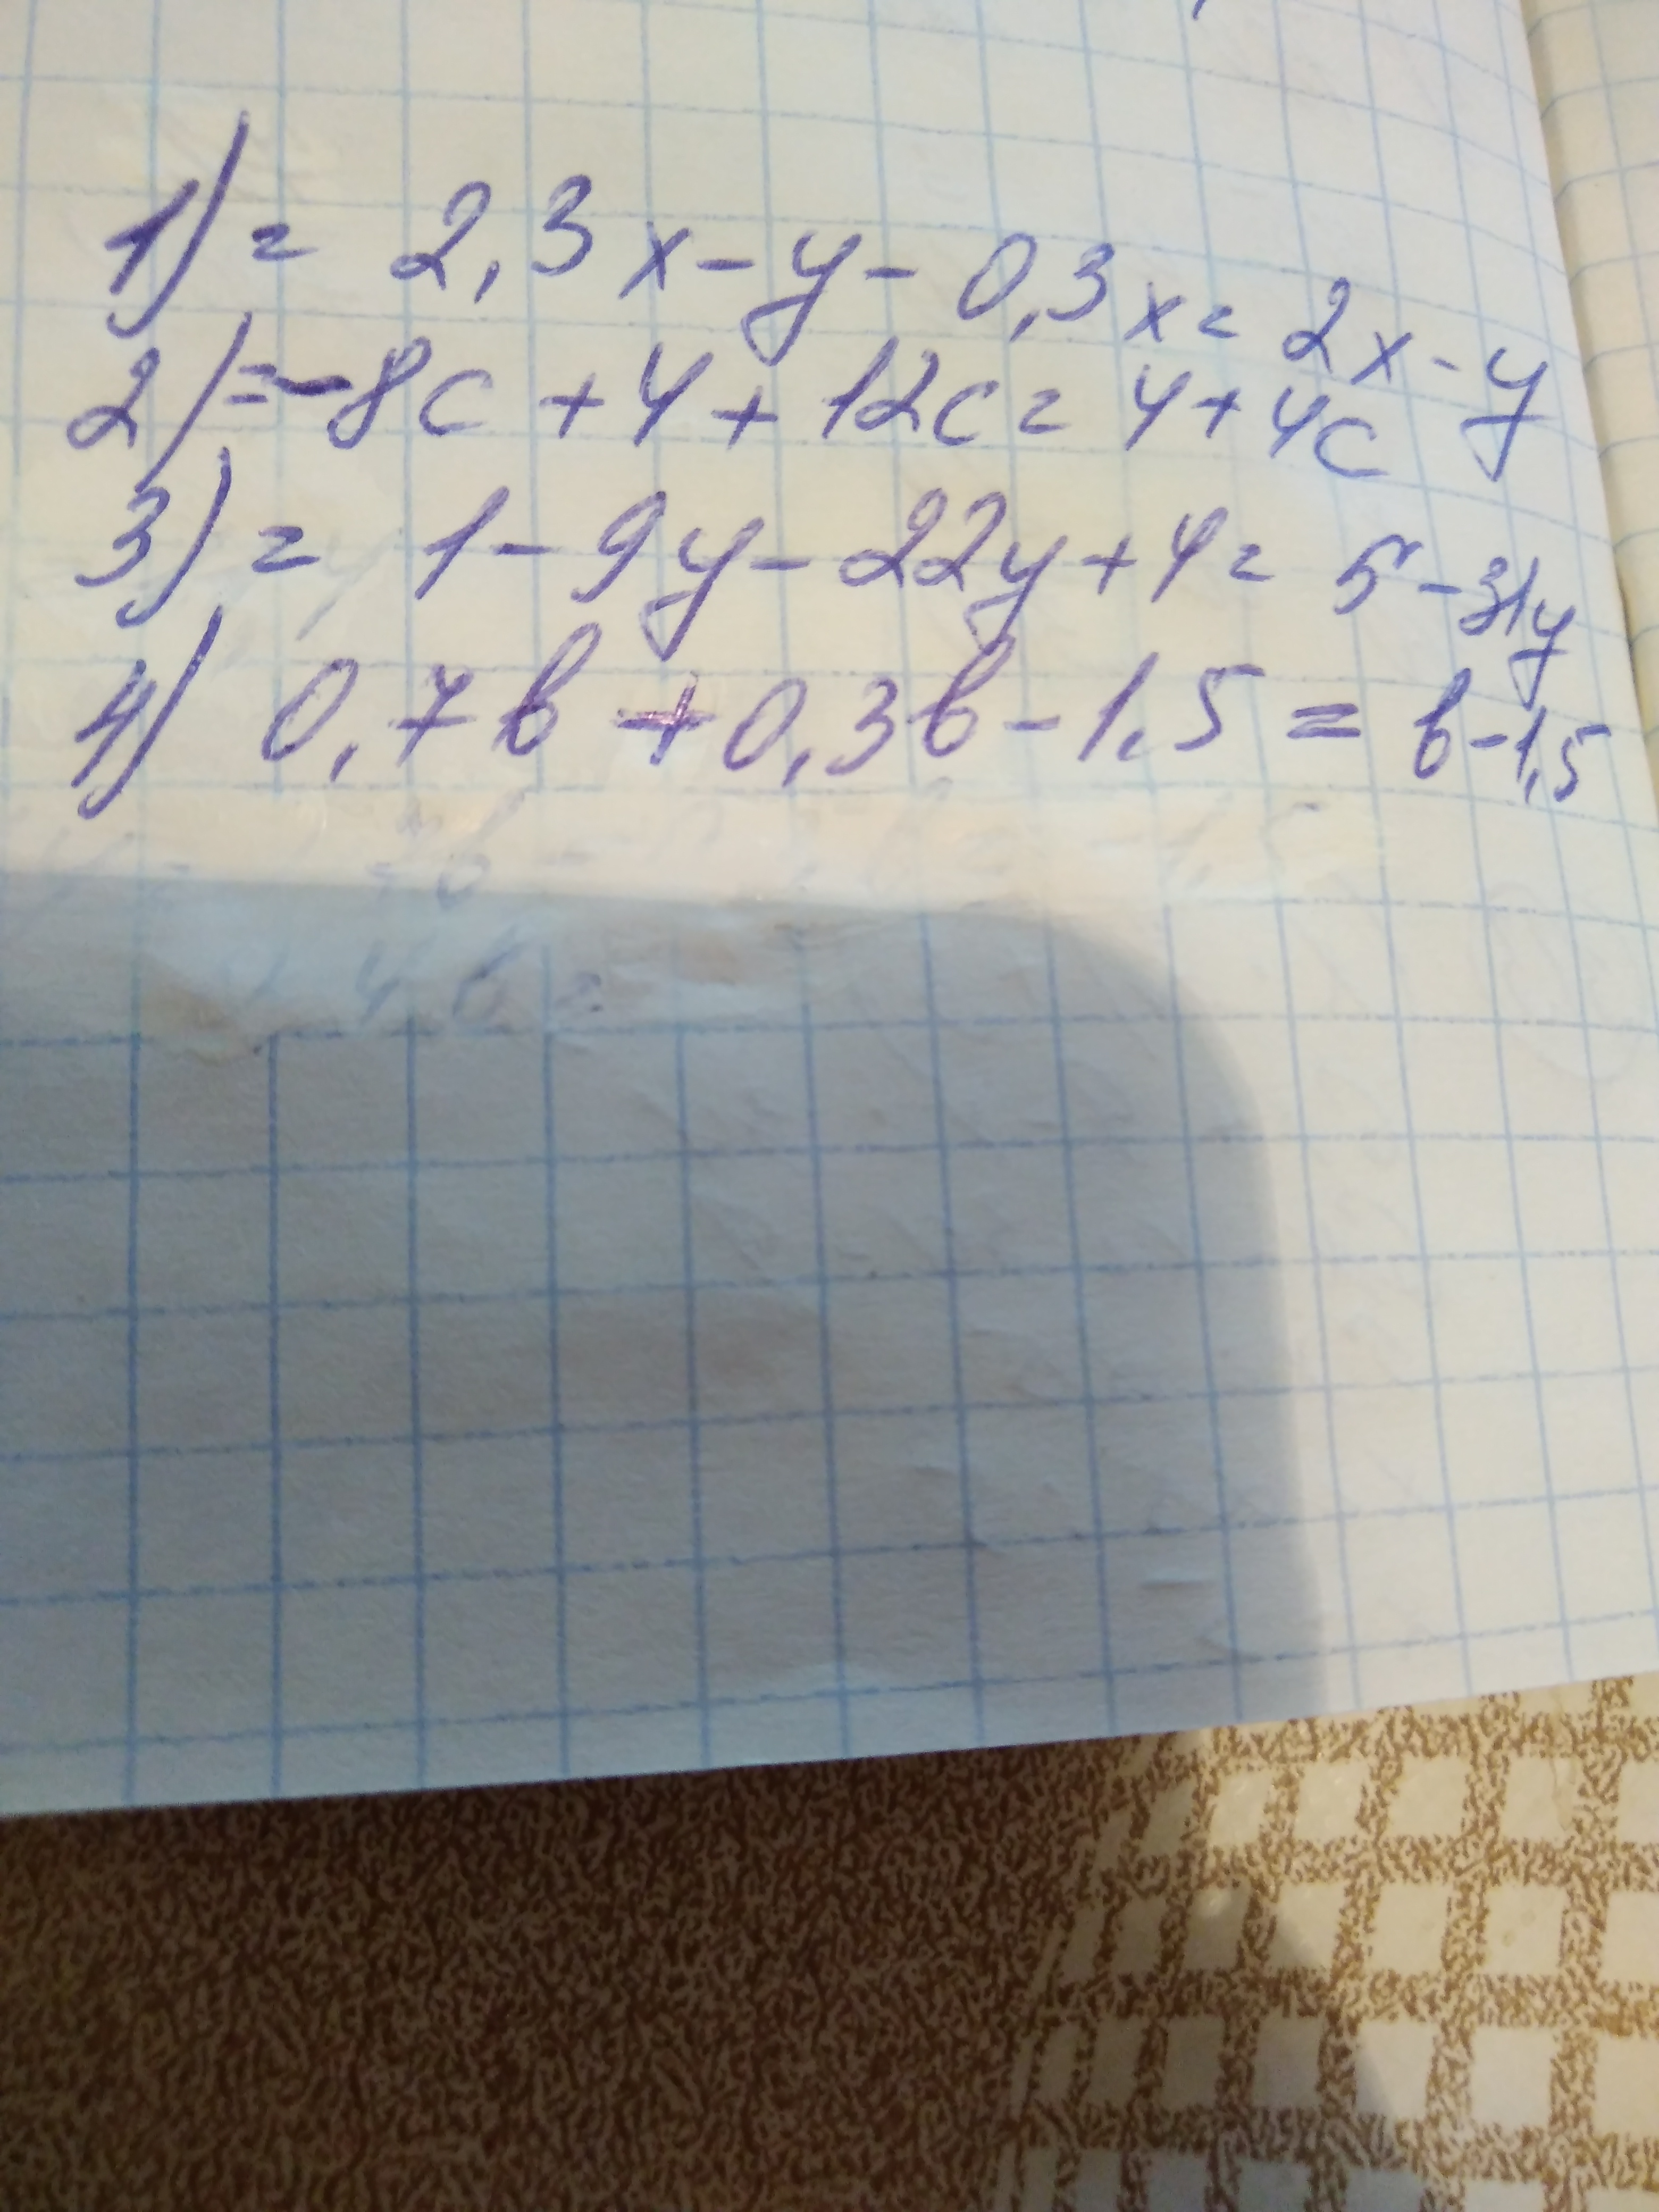 1) = 2,3x - y - 0,3x = 2x - y
2) = -8c + 4 + 12c = 4 + 4c
3) = 1 - 9y - 22y + 4 = 5 - 31y
4) 0,7b + 0,3b - 1,5 = b - 1,5